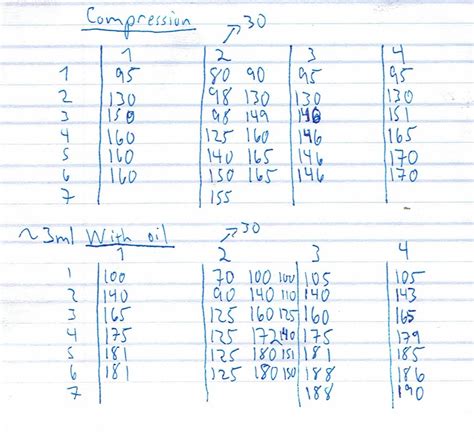 Compression
→30
1 2 3 4
1 95 80 90 95 95
2 130 98 130 130 130
3 150 98 149 151
4 160 125 160 146 165
5 160 140 165 146 170
6 160 150 165 146 170
7 155
~3ml With oil
→30
1 2 3 4
1 100 70 100 100 105 105
2 140 90 140 110 140 143
3 165 125 160 125 160 165
4 175 125 172 140 175 179
5 181 125 180 151 181 185
6 181 125 180 150 188 186
7 188 190